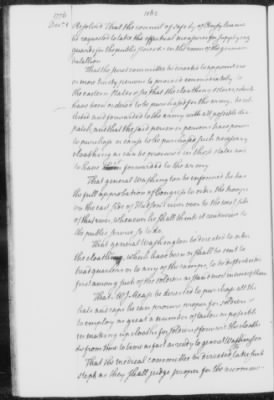 1776
Decr 4
Resolved That the council of safety of Pensylvania
be requested to take the effectual measures for supplying
guards for the public stores in the room of the german
batallion
That the secret committee be directed to appoint one
or more trusty persons to proceed immediately to
the eastern states & see that the cloathing & stores, which
have been ordered to be purchased for the army, be col-
lected and forwarded to the army with all possible dis-
patch, and that the said person or persons have power
to purchase or cause to be purchased such necessary
cloathing as can be procured in those states and
to have forwarded to the army
That general Washington be informed he has
the full approbation of Congress to order the troops
on the east side of Hudson's river over to the west side
of that river, whenever he shall think it conducive to
the public service so to do.
That general Washington be directed to order
the cloathing, which have been or shall be sent to
head quarters or to any of the camps, to be distributed
just among such of the soldiers as stand most in need of them
That Mr J. Mease be directed to purchase all the
hats and caps he can procure proper for soldiers &
to employ as great a number of tailors as possible
in making up cloaths for soldiers & forward the cloaths
&c from time to time as fast as ready to general Washington
That the medical committee be directed to take such
steps as they shall judge proper for the accommo-